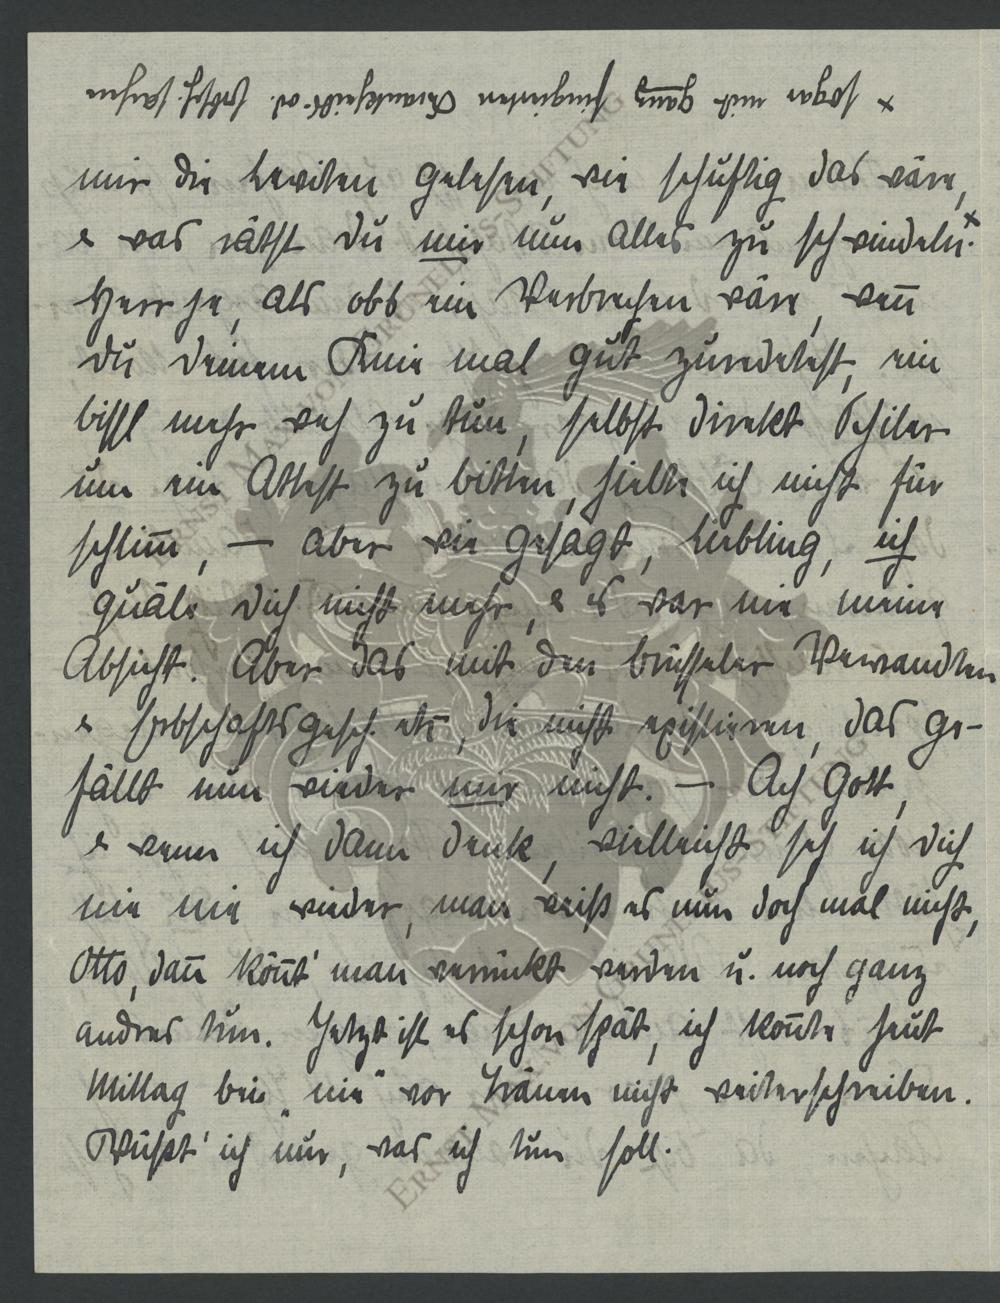 x sogar mit ganz fingierten Krankheits- od. Erbsch. sachen
mir die Leviten gelesen, wie schuftig das wäre,
& was rätst du mir nun alles zu schwindeln.x
Herr je, als obs ein Verbrechen wäre, wen̄
du deinem Knie mal gut zuredetest, ein
bissl mehr weh zu tun, selbst direkt Schiler
um ein Attest zu bitten, hielte ich nicht für
schlim̄, — aber wie gesagt, Liebling, ich
quäle dich nicht mehr, & es war nie meine
Absicht. Aber das mit den brüsseler Verwandten
& Erbschaftsgesch. etc, die nicht existieren, das ge-
fällt nun wieder mir nicht. — Ach Gott,
& wenn ich dann denk, vielleicht seh ich dich
nie nie wieder, man weiß es nun doch mal nicht,
Otto, dan̄ kön̄t' man verrückt werden u. noch ganz
andres tun. Jetzt ist es schon spät, ich kon̄te heut
Mittag bei „nie" vor Tränen nicht weiterschreiben.
Wüßt' ich nur, was ich tun soll.
ERNST MARIA VON GRUNELIUS-STIFTUNG
ERNST MARIA VON GRUNELIUS-STIFTUNG